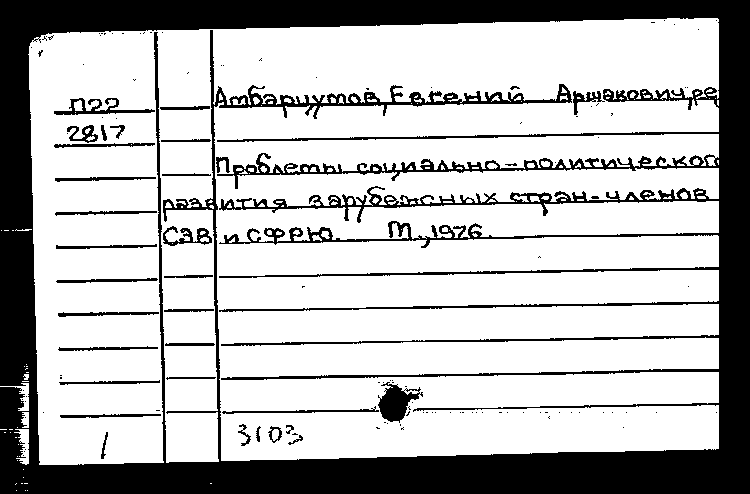 П22 Амбарцумов, Евгений Аршакович, ре
2817
Проблемы социально-политического
развития зарубежных стран-членов
СЭВ и СФРЮ. М., 1976.
1 3103